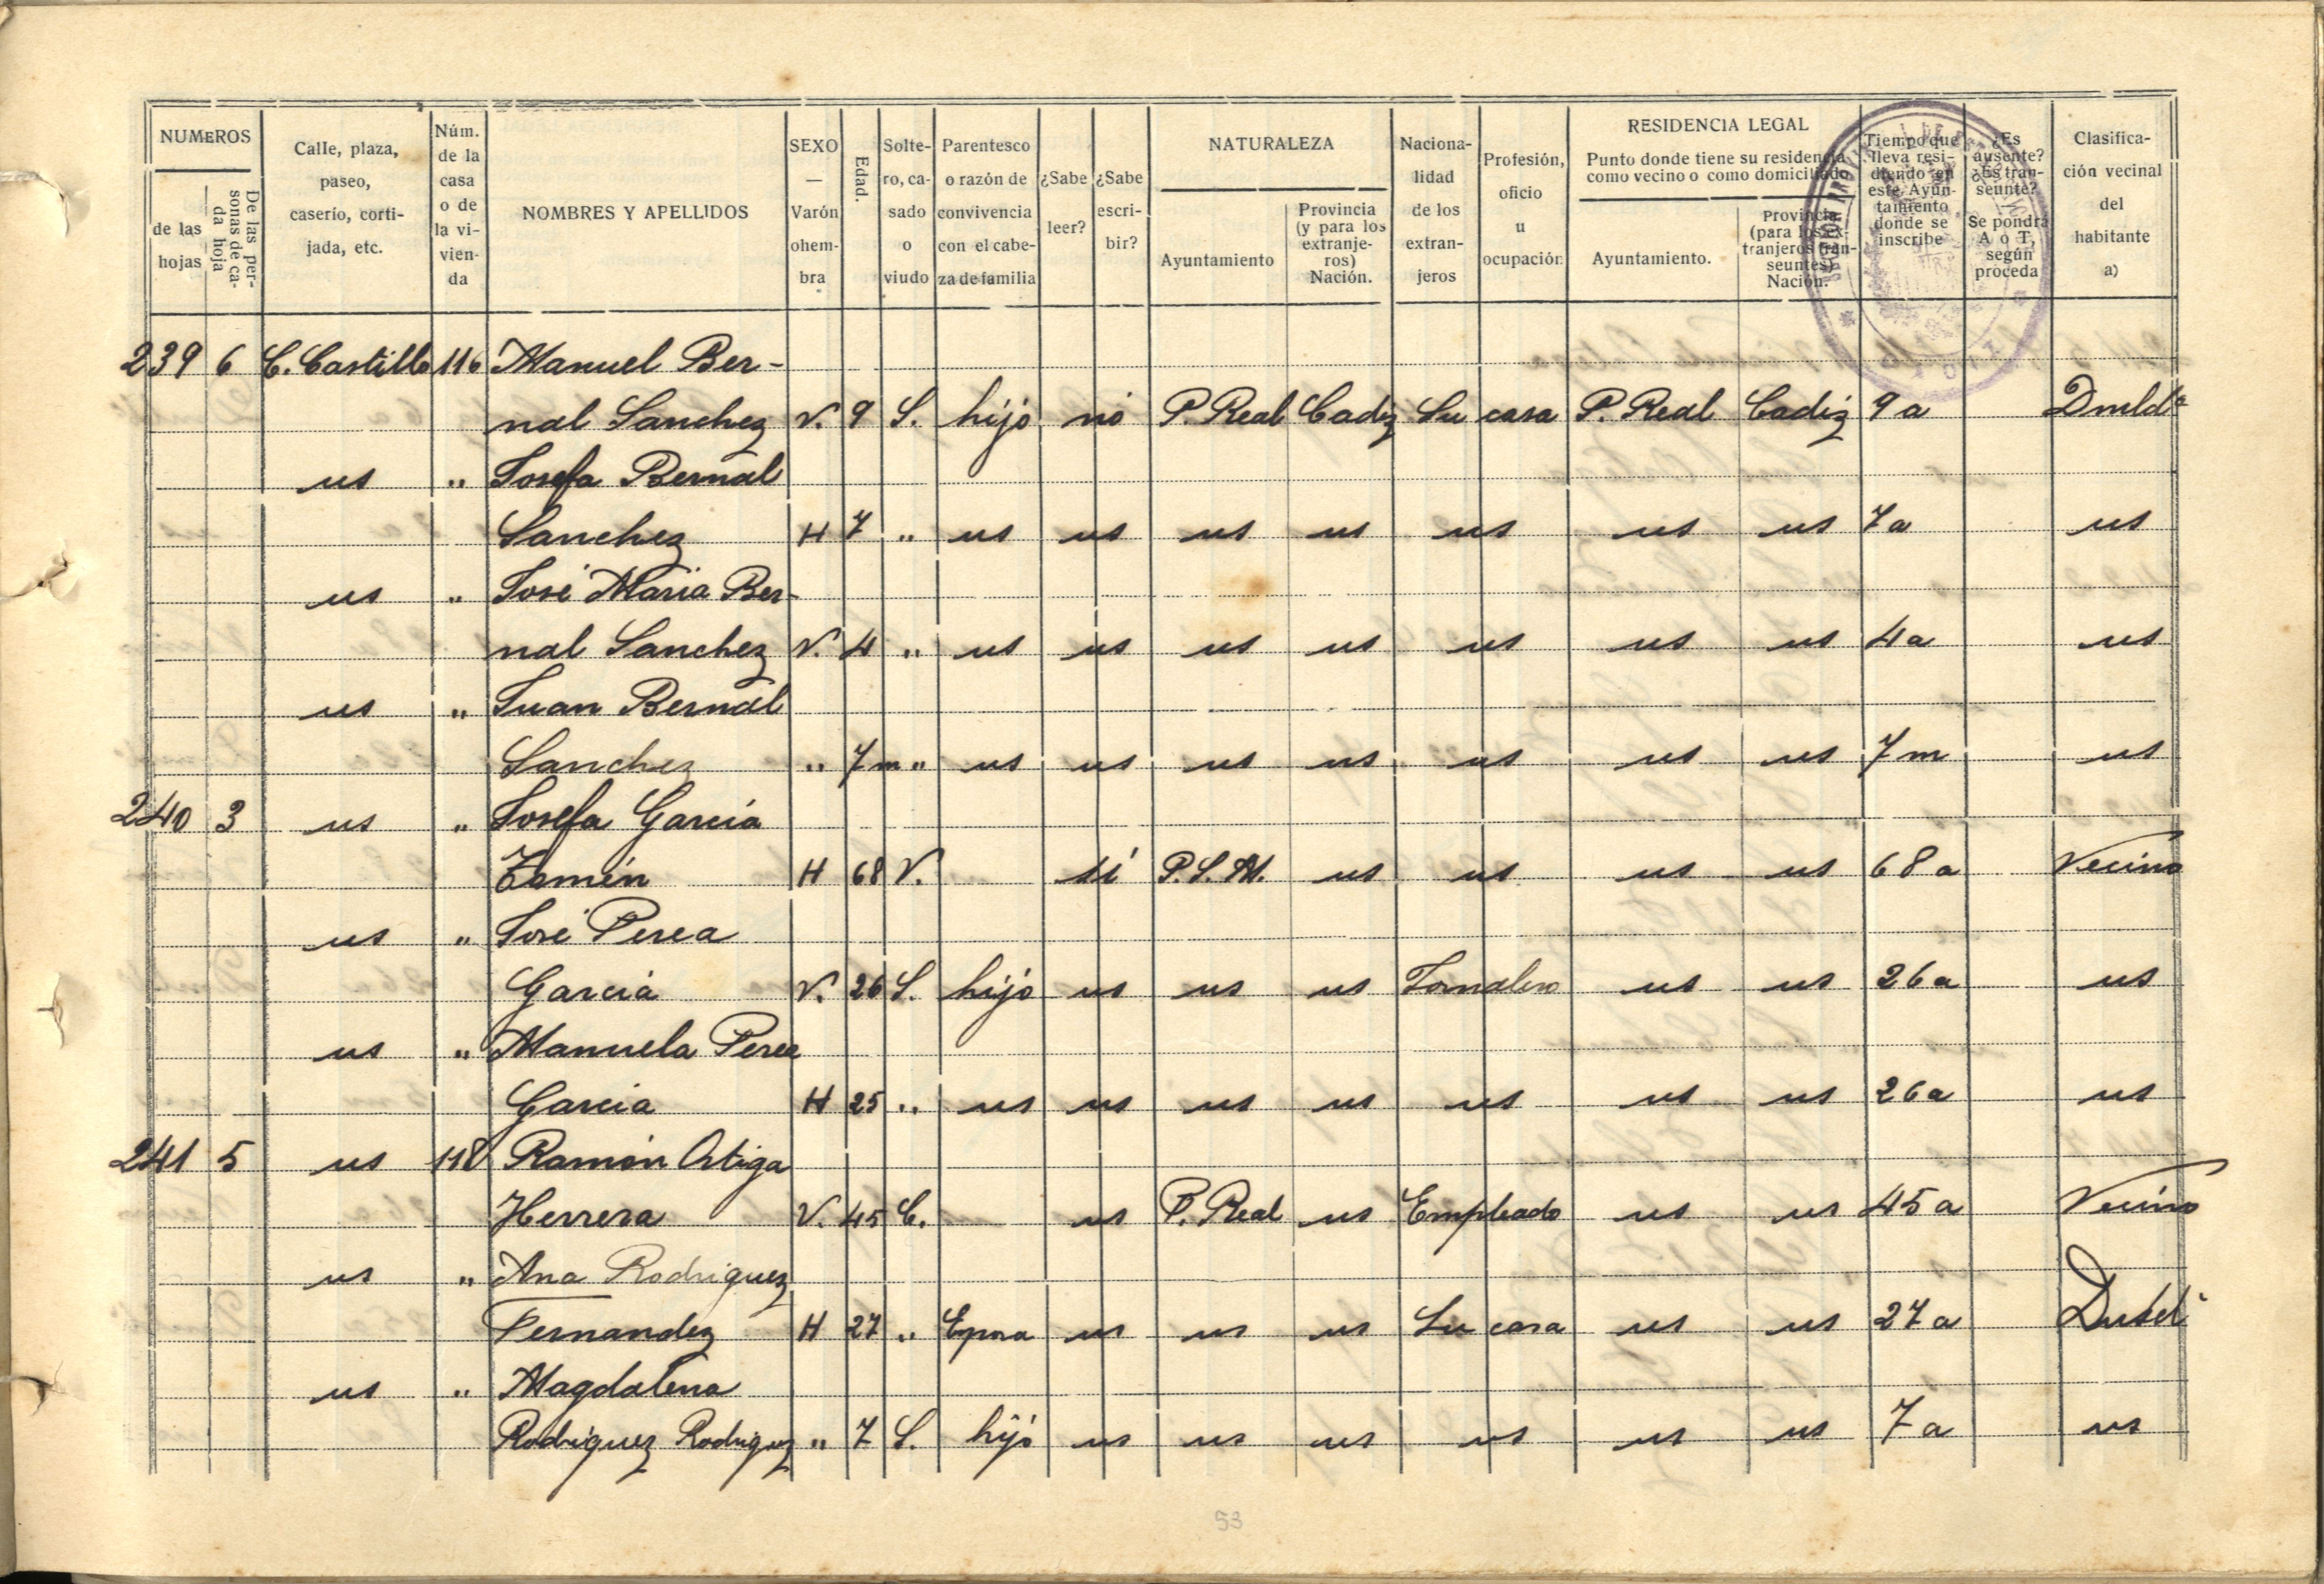 NUMEROS
de las hojas
De las personas de cada hoja
Calle, plaza, paseo, caserío, cortijada, etc.
Núm. de la casa o de la vivienda
NOMBRES Y APELLIDOS
SEXO — Varón o hembra
Edad.
Soltero, casado o viudo
Parentesco o razón de convivencia con el cabeza de familia
¿Sabe leer?
¿Sabe escribir?
NATURALEZA
Ayuntamiento
Provincia (y para los extranjeros) Nación.
Nacionalidad de los extranjeros
Profesión, oficio u ocupación
RESIDENCIA LEGAL
Punto donde tiene su residencia como vecino o como domiciliado
Ayuntamiento.
Provincia (para los extranjeros transeuntes) Nación.
Tiempo que lleva residiendo en este Ayuntamiento donde se inscribe
¿Es ausente? ¿Es transeunte? Se pondrá A o T, según proceda
Clasificación vecinal del habitante a)
239 6 C. Castillo 116 Manuel Ber-
nal Sanchez V. 9 S. hijo no P. Real Cadiz Su casa P. Real Cadiz 9 a Dmldº
us " Josefa Bernal
Sanchez H 7 " us us us us us us us 7 a us
us " José Maria Ber-
nal Sanchez V. 4 " us us us us us us us 4 a us
us " Juan Bernal
Sanchez " 7 m " us us us us us us us 7 m us
240 3 us " Josefa Garcia
H 68 V. sí P. S. M. us us us us 68 a Vecino
us " José Perea
Garcia V. 26 S. hijo us us us Jornalero us us 26 a us
us " Manuela Perea
Garcia H 25 " us us us us us us us 26 a us
241 5 us 118 Ramón Ortiga
Herrera V. 45 C. us P. Real us Empleado us us 45 a Vecino
us " Ana Rodriguez
Fernandez H 27 " Esposa us us us Su casa us us 27 a
us " Magdalena
Rodriguez Rodriguez " 7 S. hijo us us us us us us 7 a us
53